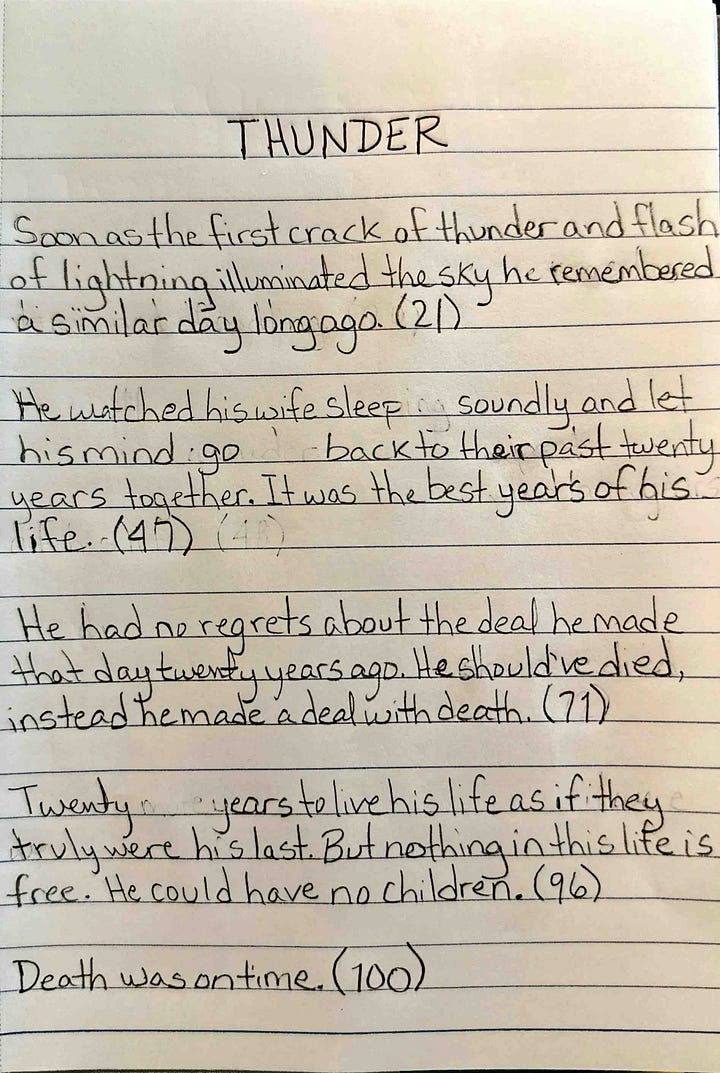 THUNDER
Soon as the first crack of thunder and flash
of lightning illuminated the sky he remembered
a similar day long ago. (21)
He watched his wife sleep soundly and let
his mind go back to their past twenty
years together. It was the best years of his
life. (47)
He had no regrets about the deal he made
that day twenty years ago. He should've died,
instead he made a deal with death. (71)
Twenty years to live his life as if they
truly were his last. But nothing in this life is
free. He could have no children. (96)
Death was on time. (100)